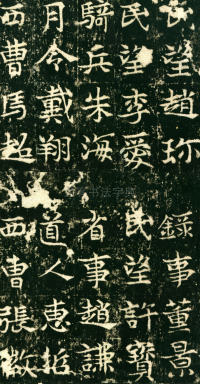 望趙珎
民望李愛
騎兵朱海
月令戴翔
西曹馬超
錄事董景
民望許寶
省事趙謙
道人惠
西曹張